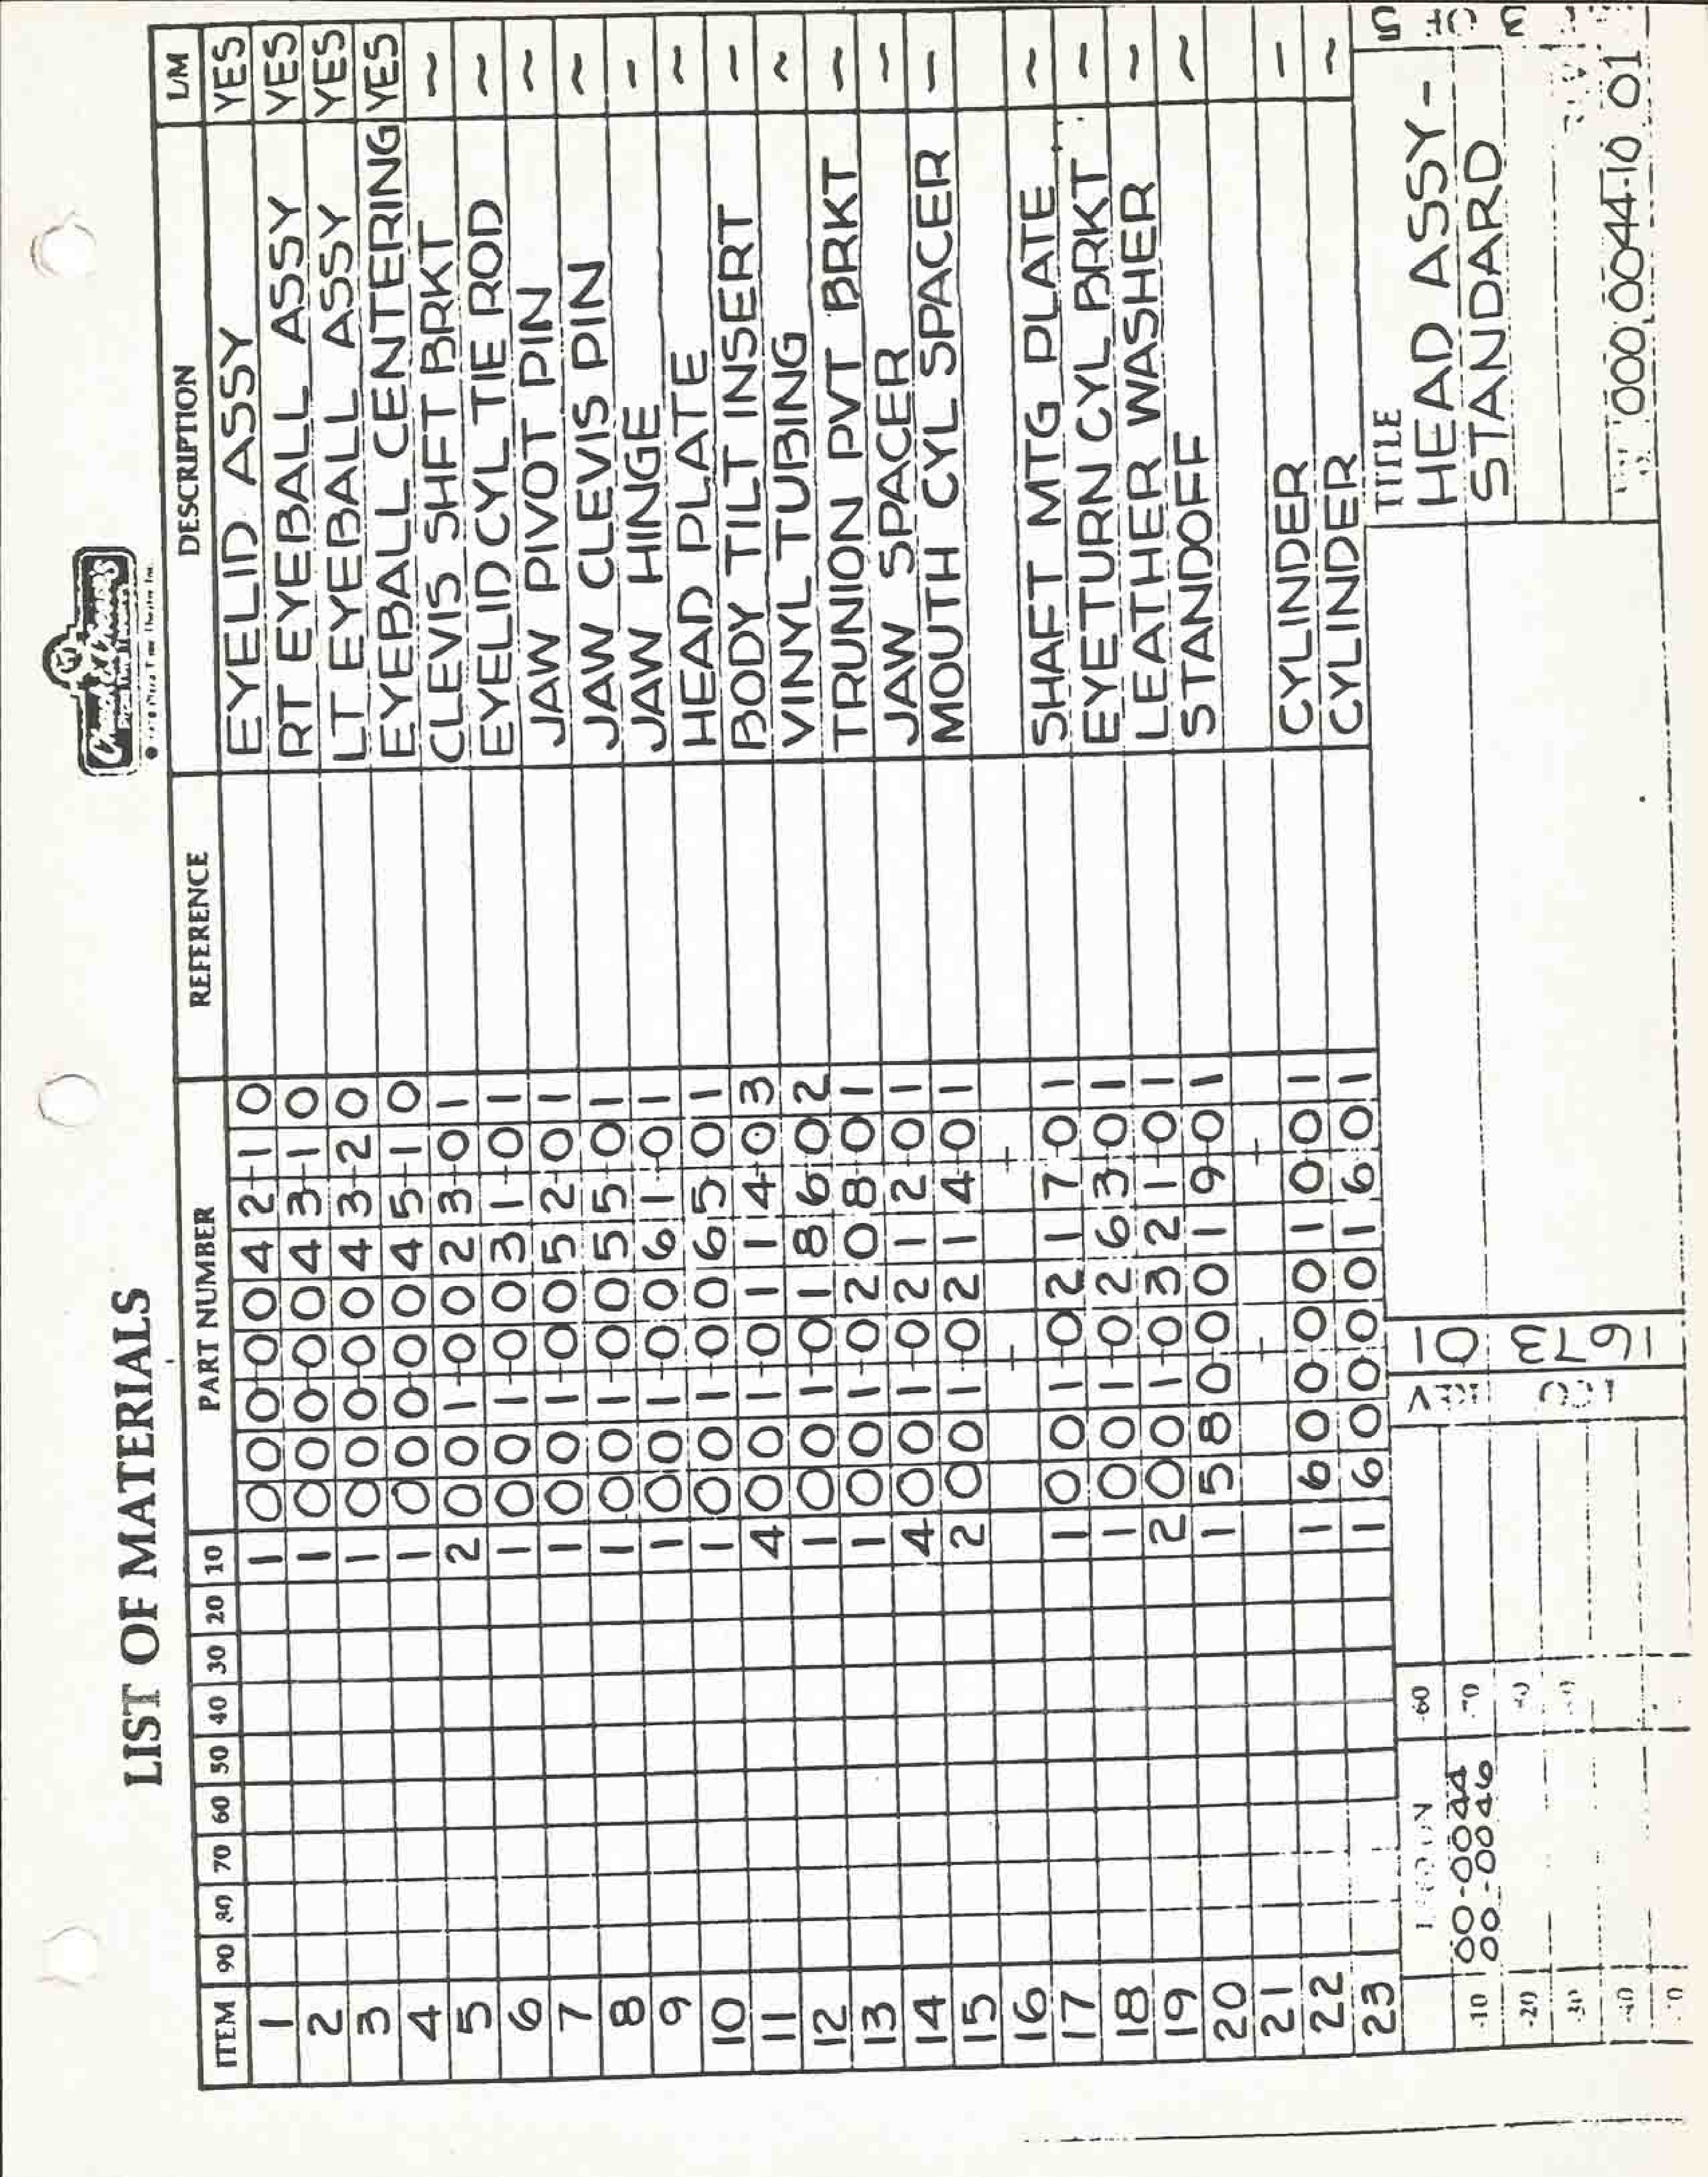 Chuck E. Cheese's
LIST OF MATERIALS
ITEM 90 80 70 60 50 40 30 20 10 PART NUMBER REFERENCE DESCRIPTION L/M
1 1 000-0042-10 EYELID ASSY YES
2 1 000-0043-10 RT EYEBALL ASSY YES
3 1 000-0043-20 LT EYEBALL ASSY YES
4 1 000-0045-10 EYEBALL CENTERING YES
5 2 001-0023-01 CLEVIS SHFT BRKT ~
6 1 001-0031-01 EYELID CYL TIE ROD ~
7 1 001-0052-01 JAW PIVOT PIN ~
8 1 001-0055-01 JAW CLEVIS PIN ~
9 1 001-0061-01 JAW HINGE ~
10 1 001-0065-01 HEAD PLATE ~
11 4 001-0114-03 BODY TILT INSERT ~
12 1 001-0186-02 VINYL TUBING ~
13 1 001-0208-01 TRUNION PVT BRKT ~
14 4 001-0212-01 JAW SPACER ~
15 2 001-0214-01 MOUTH CYL SPACER ~
16
17 1 001-0217-01 SHAFT MTG PLATE ~
18 1 001-0263-01 EYETURN CYL BRKT ~
19 2 001-0321-01 LEATHER WASHER ~
20 1 580-0019-01 STANDOFF ~
21
22 1 600-0010-01 CYLINDER ~
23 1 600-0016-01 CYLINDER ~
-10 00-0044 -60
00-0046 -70
-20
-30
-40
REV 01
1673
TITLE
HEAD ASSY -
STANDARD
000 0044-10 01
3 OF 5